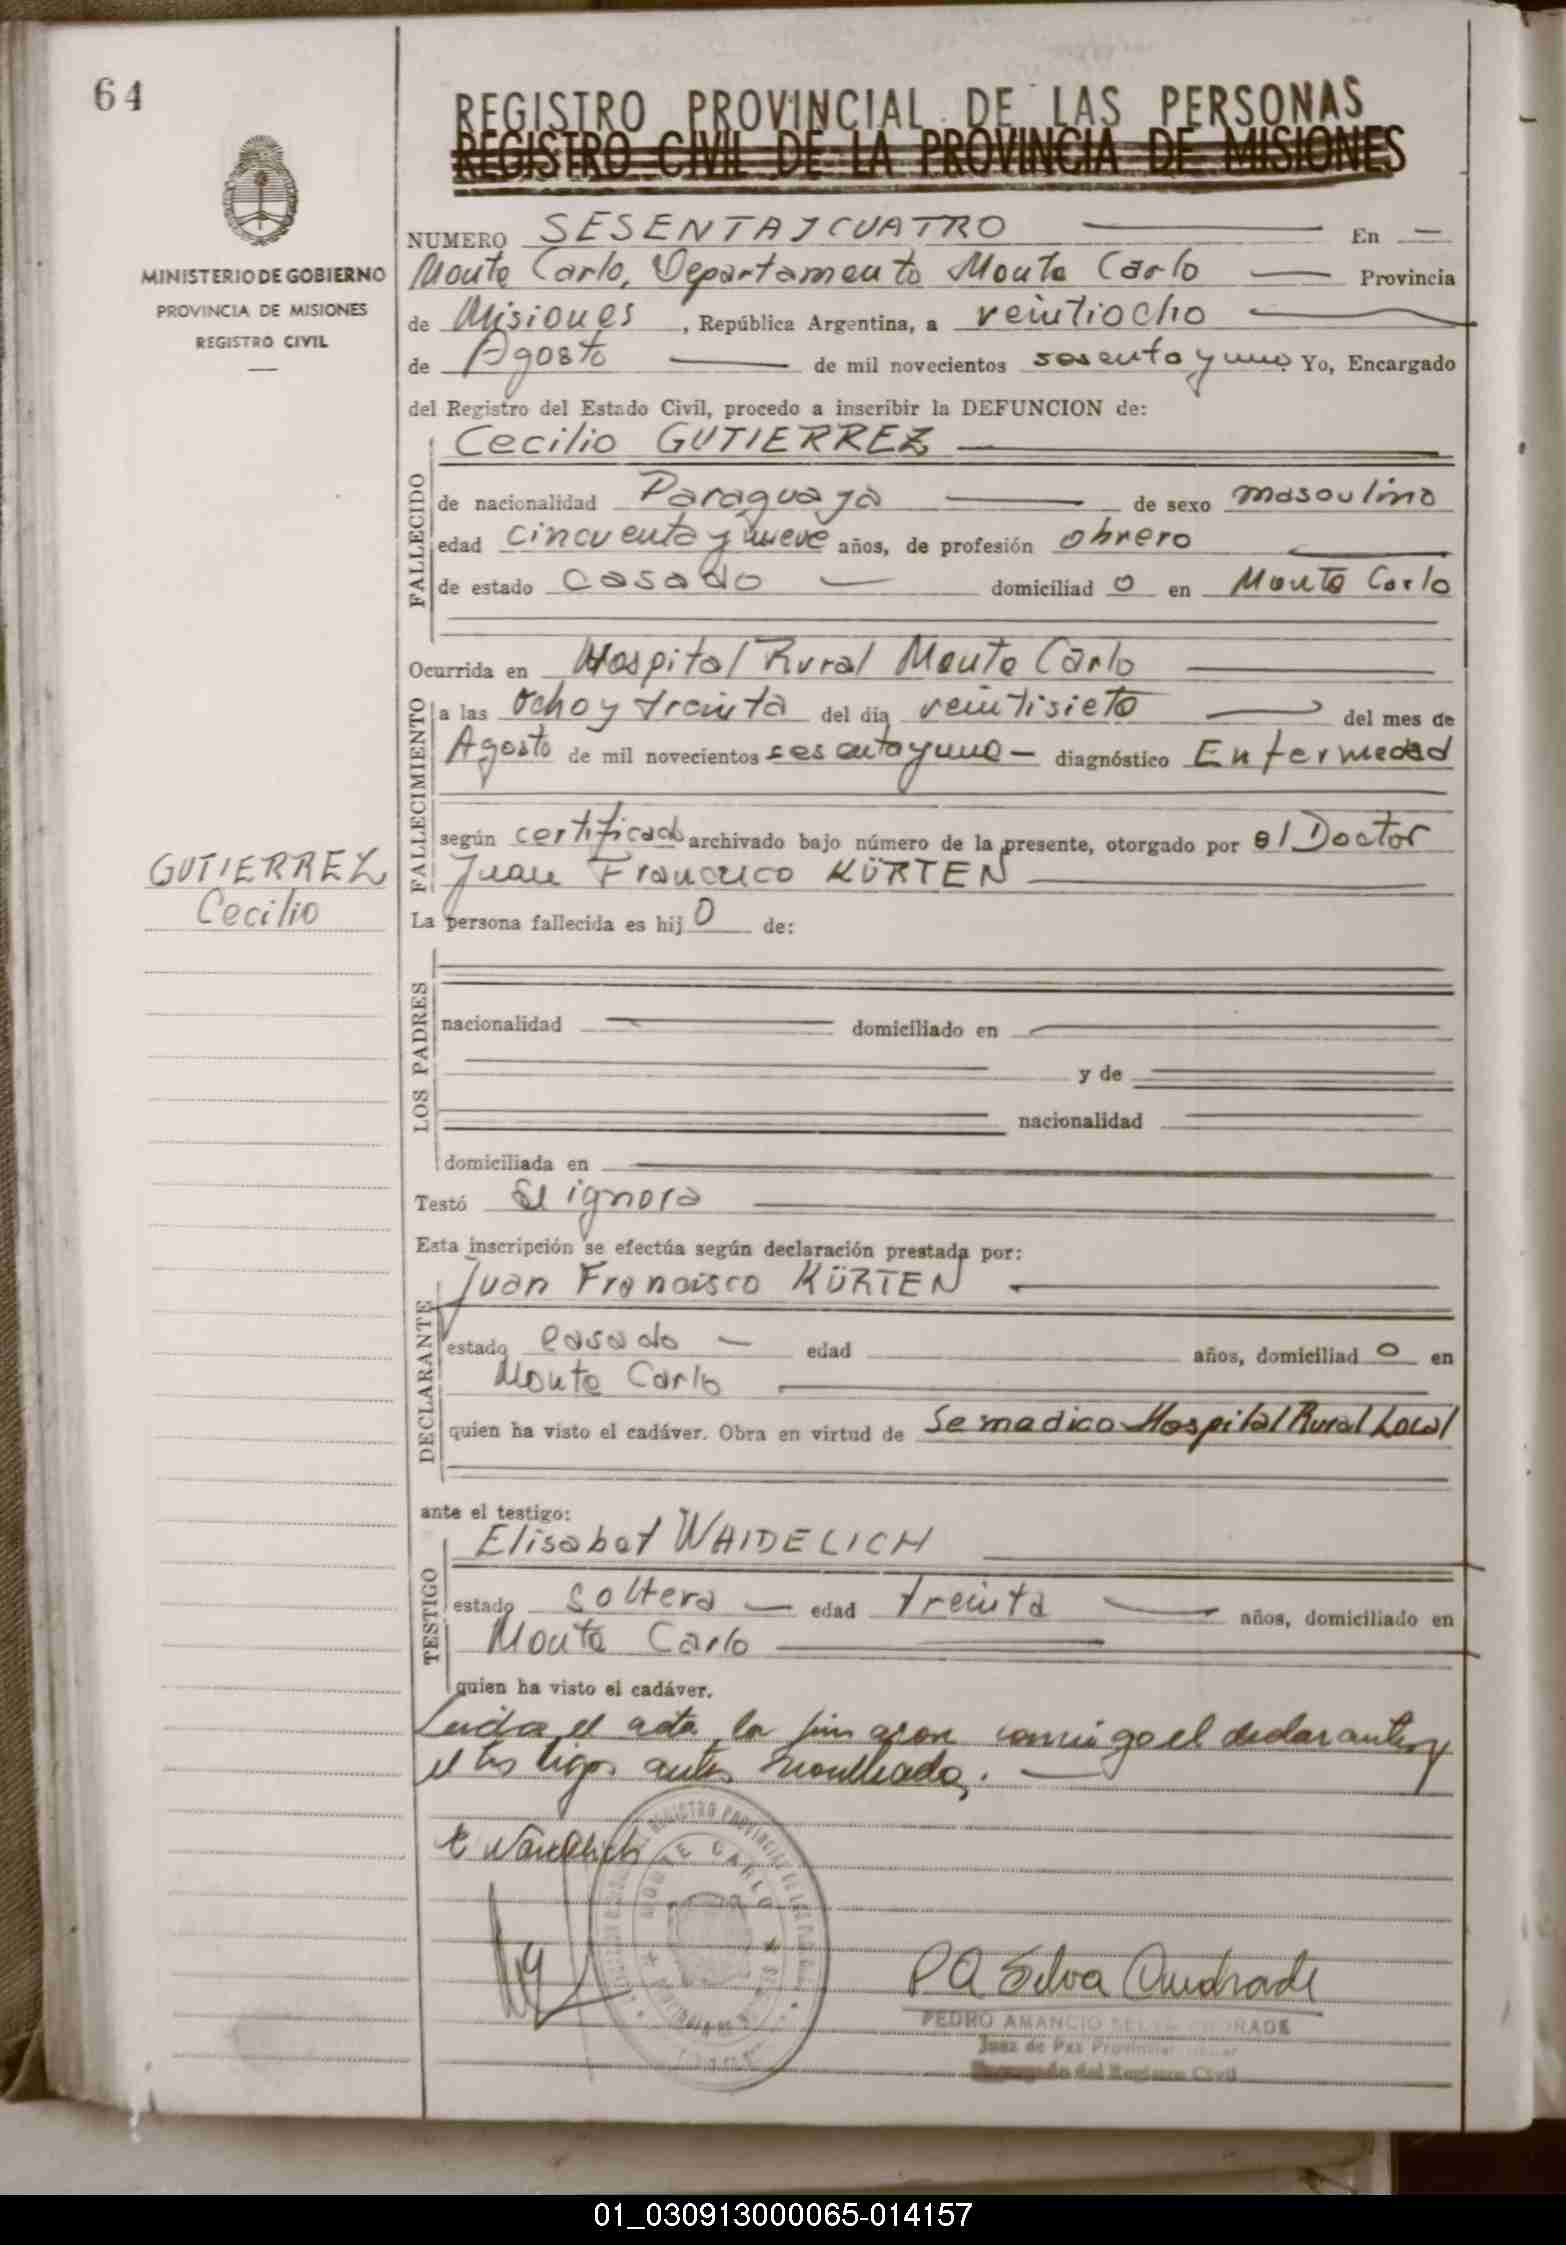 64
REGISTRO PROVINCIAL DE LAS PERSONAS
REGISTRO CIVIL DE LA PROVINCIA DE MISIONES
MINISTERIO DE GOBIERNO
PROVINCIA DE MISIONES
REGISTRO CIVIL
NUMERO SESENTA Y CUATRO En
Monte Carlo, Departamento Monte Carlo Provincia
de Misiones, República Argentina, a veintiocho
de Agosto de mil novecientos sesenta y uno Yo, Encargado
del Registro del Estado Civil, procedo a inscribir la DEFUNCION de:
FALLECIDO
Cecilio GUTIERREZ
de nacionalidad Paraguaya de sexo masculino
edad cincuenta y nueve años, de profesión obrero
de estado casado domiciliad o en Monte Carlo
Ocurrida en Hospital Rural Monte Carlo
FALLECIMIENTO
a las ocho y treinta del día veintisiete del mes de
Agosto de mil novecientos sesenta y uno diagnóstico Enfermedad
según certificado archivado bajo número de la presente, otorgado por el Doctor
Juan Francisco KÜRTEN
GUTIERREZ
Cecilio
La persona fallecida es hij o de:
LOS PADRES
nacionalidad domiciliado en
y de
nacionalidad
domiciliada en
Testó Se ignora
Esta inscripción se efectúa según declaración prestada por:
DECLARANTE
Juan Francisco KÜRTEN
estado casado edad años, domiciliad o en
Monte Carlo
quien ha visto el cadáver. Obra en virtud de Se medico Hospital Rural Local
ante el testigo:
TESTIGO
Elisabet WAIDELICH
estado soltera edad treinta años, domiciliado en
Monte Carlo
quien ha visto el cadáver.
Leida el acta, la firmaron conmigo el declarante y
el testigo antes nombrado.
E Waidelich
MONTE CARLO
P A Silva Andrade
PEDRO AMANCIO SILVA ANDRADE
Juez de Paz Provincial
Encargado del Registro Civil
01_030913000065-014157